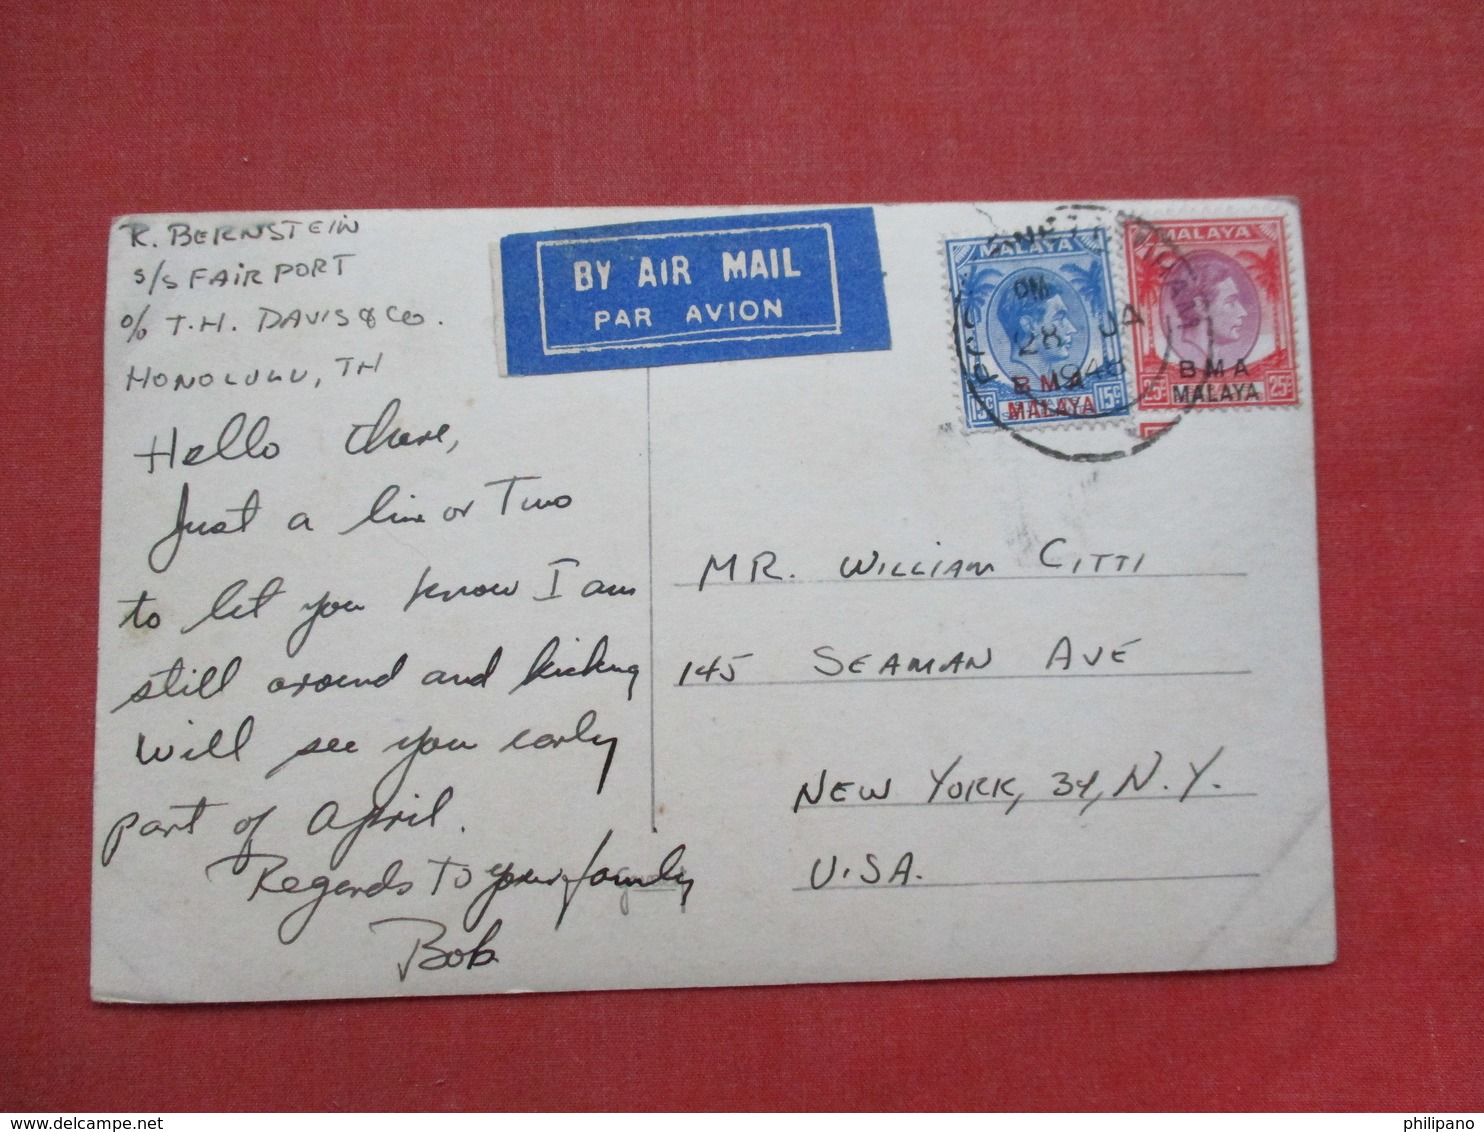 R. BERNSTEIN
S/S FAIRPORT
c/o T.H. DAVIS & CO.
HONOLULU, TH
Hello there,
Just a line or Two
to let you know I am
still around and kicking
Will see you early
part of April.
Regards To your family
Bob
BY AIR MAIL
PAR AVION
MALAYA
BMA
MALAYA
15c 15c
PM
28 JA
MALAYA
BMA
MALAYA
25c 25c
MR. WILLIAM CITTI
145 SEAMAN AVE
NEW YORK, 34, N.Y.
U.S.A.
philipano